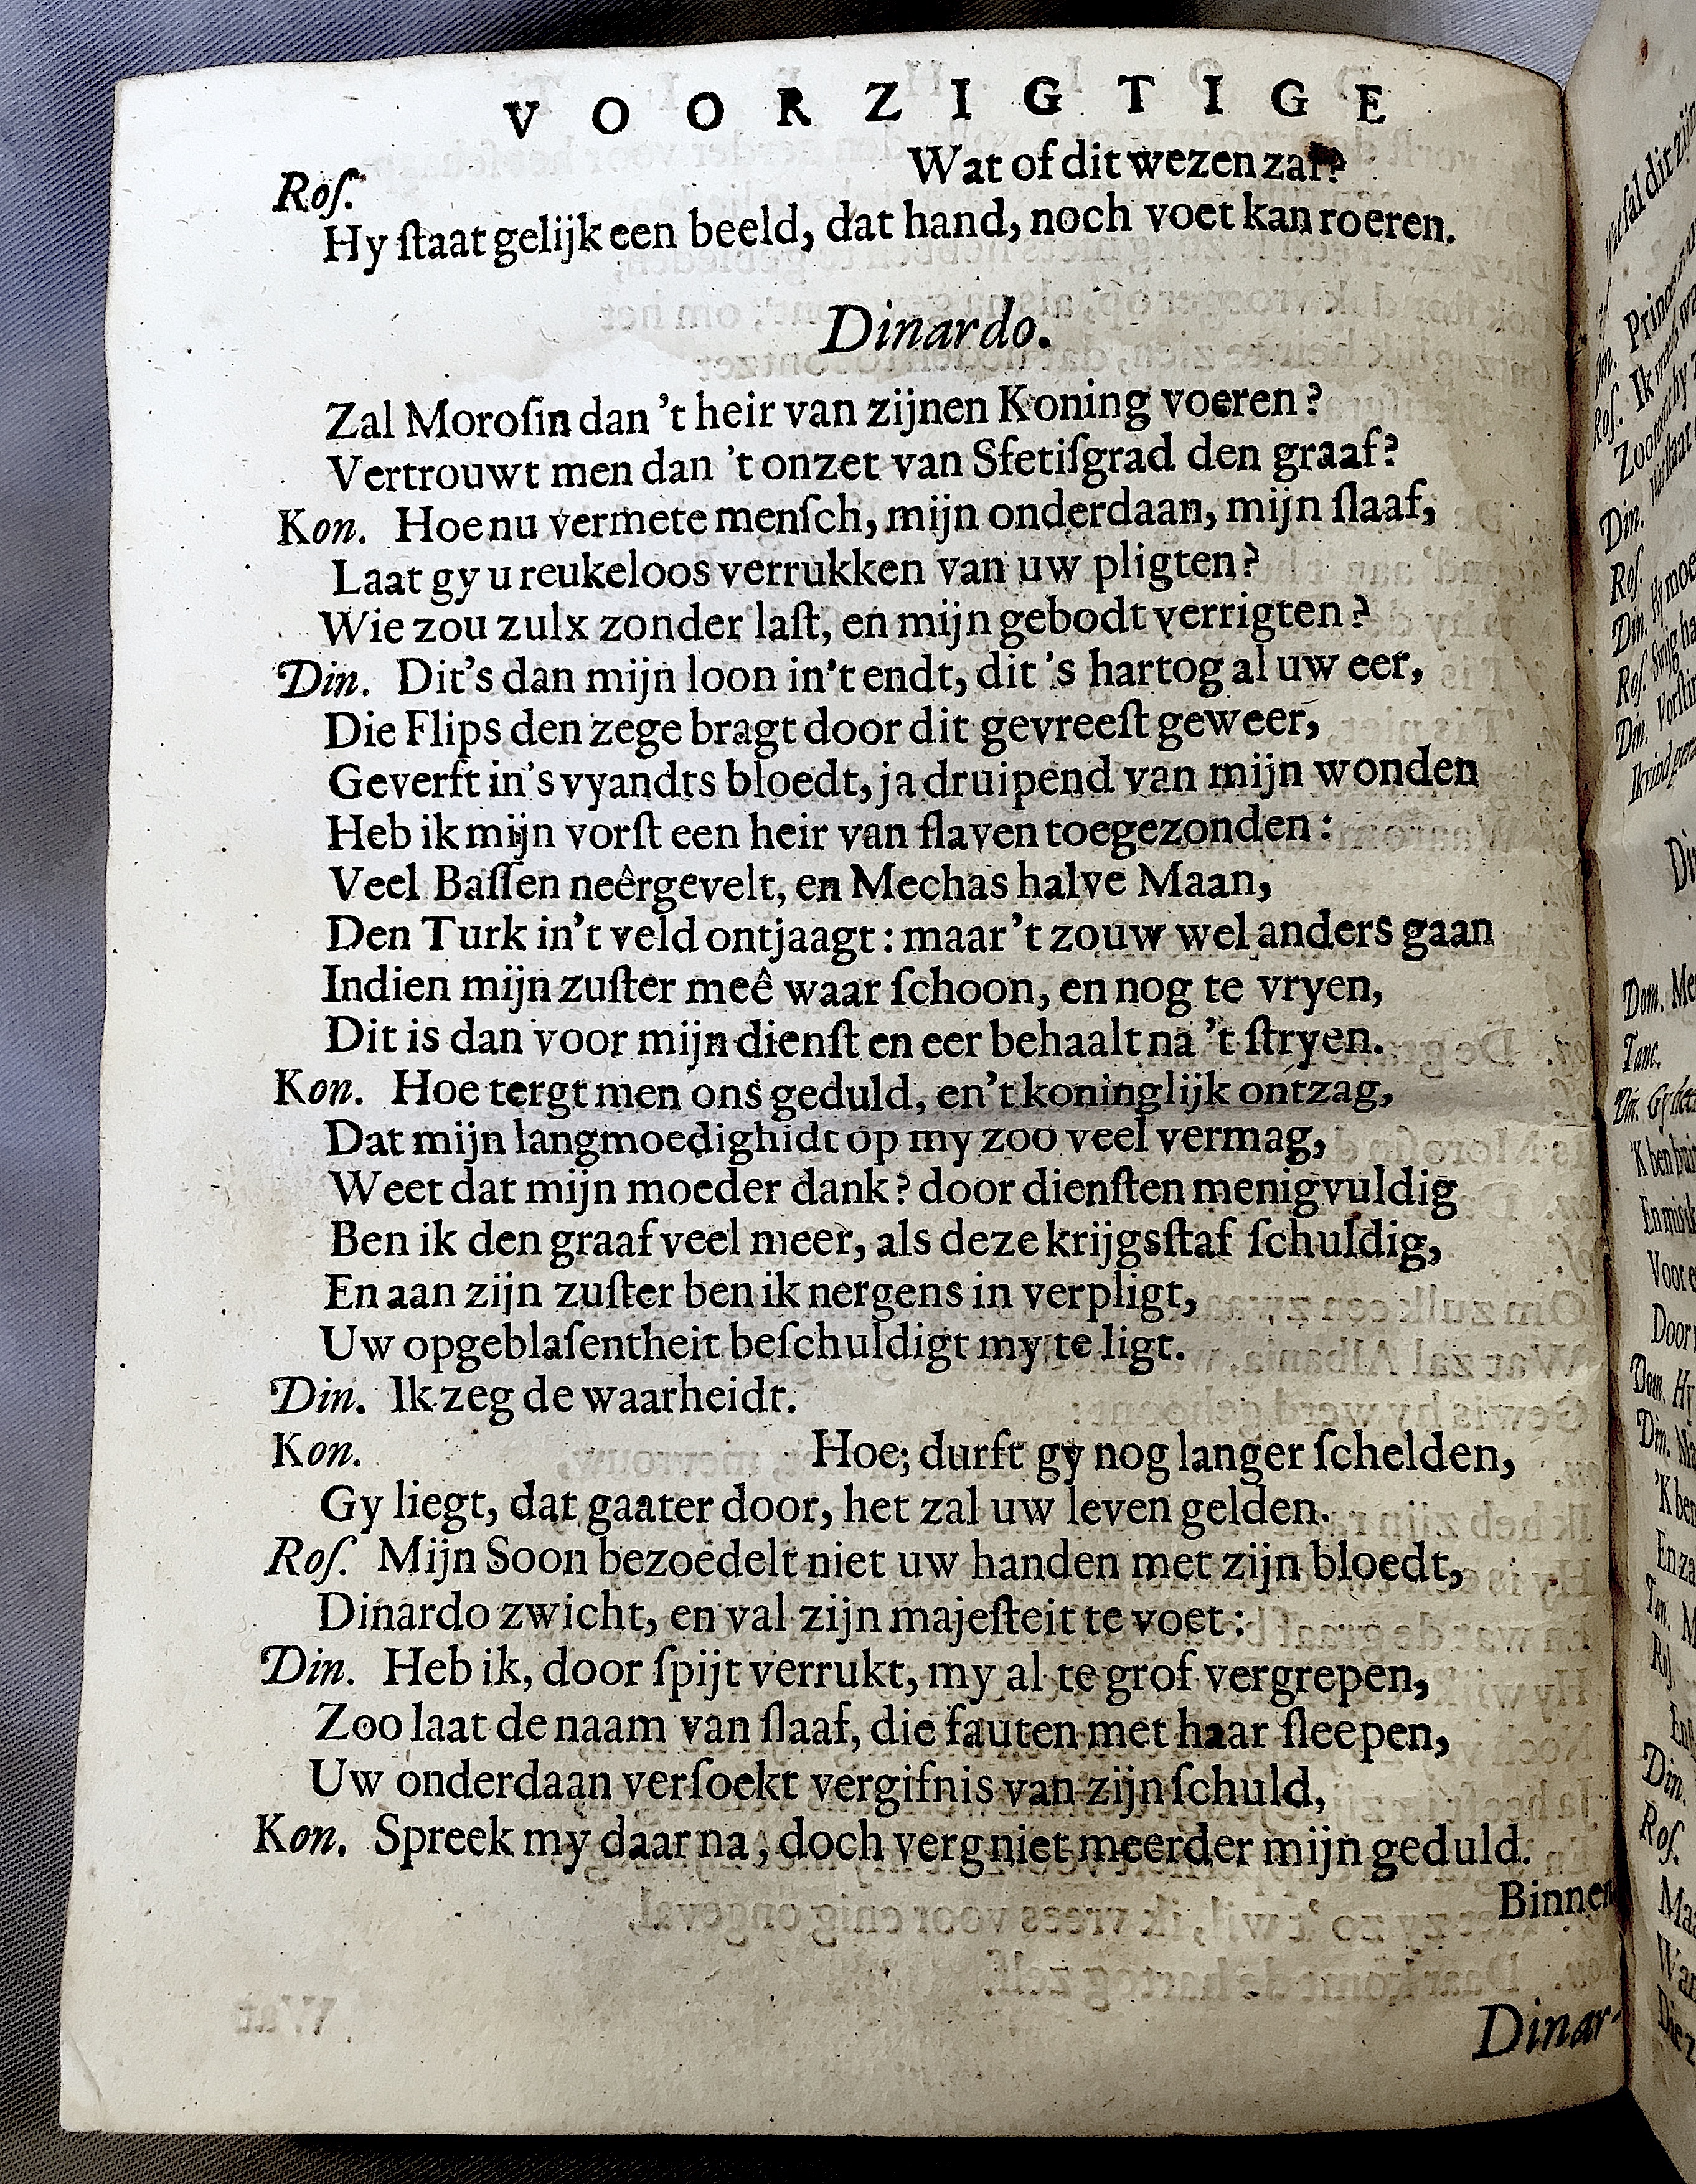 VOORZIGTIGE
Roſ. Wat of dit wezen zal?
Hy ſtaat gelijk een beeld, dat hand, noch voet kan roeren.
Dinardo.
Zal Moroſin dan 't heir van zijnen Koning voeren?
Vertrouwt men dan 't onzet van Sfetiſgrad den graaf?
Kon. Hoe nu vermete menſch, mijn onderdaan, mijn ſlaaf,
Laat gy u reukeloos verrukken van uw pligten?
Wie zou zulx zonder laſt, en mijn gebodt verrigten?
Din. Dit's dan mijn loon in't endt, dit 's hartog al uw eer,
Die Flips den zege bragt door dit gevreeſt geweer,
Geverft in's vyandts bloedt, ja druipend van mijn wonden
Heb ik mijn vorſt een heir van ſlaven toegezonden:
Veel Baſſen neêrgevelt, en Mechas halve Maan,
Den Turk in't veld ontjaagt: maar 't zouw wel anders gaan
Indien mijn zuſter meê waar ſchoon, en nog te vryen,
Dit is dan voor mijn dienſt en eer behaalt na 't ſtryen.
Kon. Hoe tergt men ons geduld, en't koninglijk ontzag,
Dat mijn langmoedighidt op my zoo veel vermag,
Weet dat mijn moeder dank? door dienſten menigvuldig
Ben ik den graaf veel meer, als deze krijgsſtaf ſchuldig,
En aan zijn zuſter ben ik nergens in verpligt,
Uw opgeblaſentheit beſchuldigt my te ligt.
Din. Ik zeg de waarheidt.
Kon. Hoe; durft gy nog langer ſchelden,
Gy liegt, dat gaater door, het zal uw leven gelden.
Roſ. Mijn Soon bezoedelt niet uw handen met zijn bloedt,
Dinardo zwicht, en val zijn majeſteit te voet:
Din. Heb ik, door ſpijt verrukt, my al te grof vergrepen,
Zoo laat de naam van ſlaaf, die fauten met haar ſleepen,
Uw onderdaan verſoekt vergifnis van zijn ſchuld,
Kon. Spreek my daar na, doch verg niet meerder mijn geduld.
Binnen
Dinar-